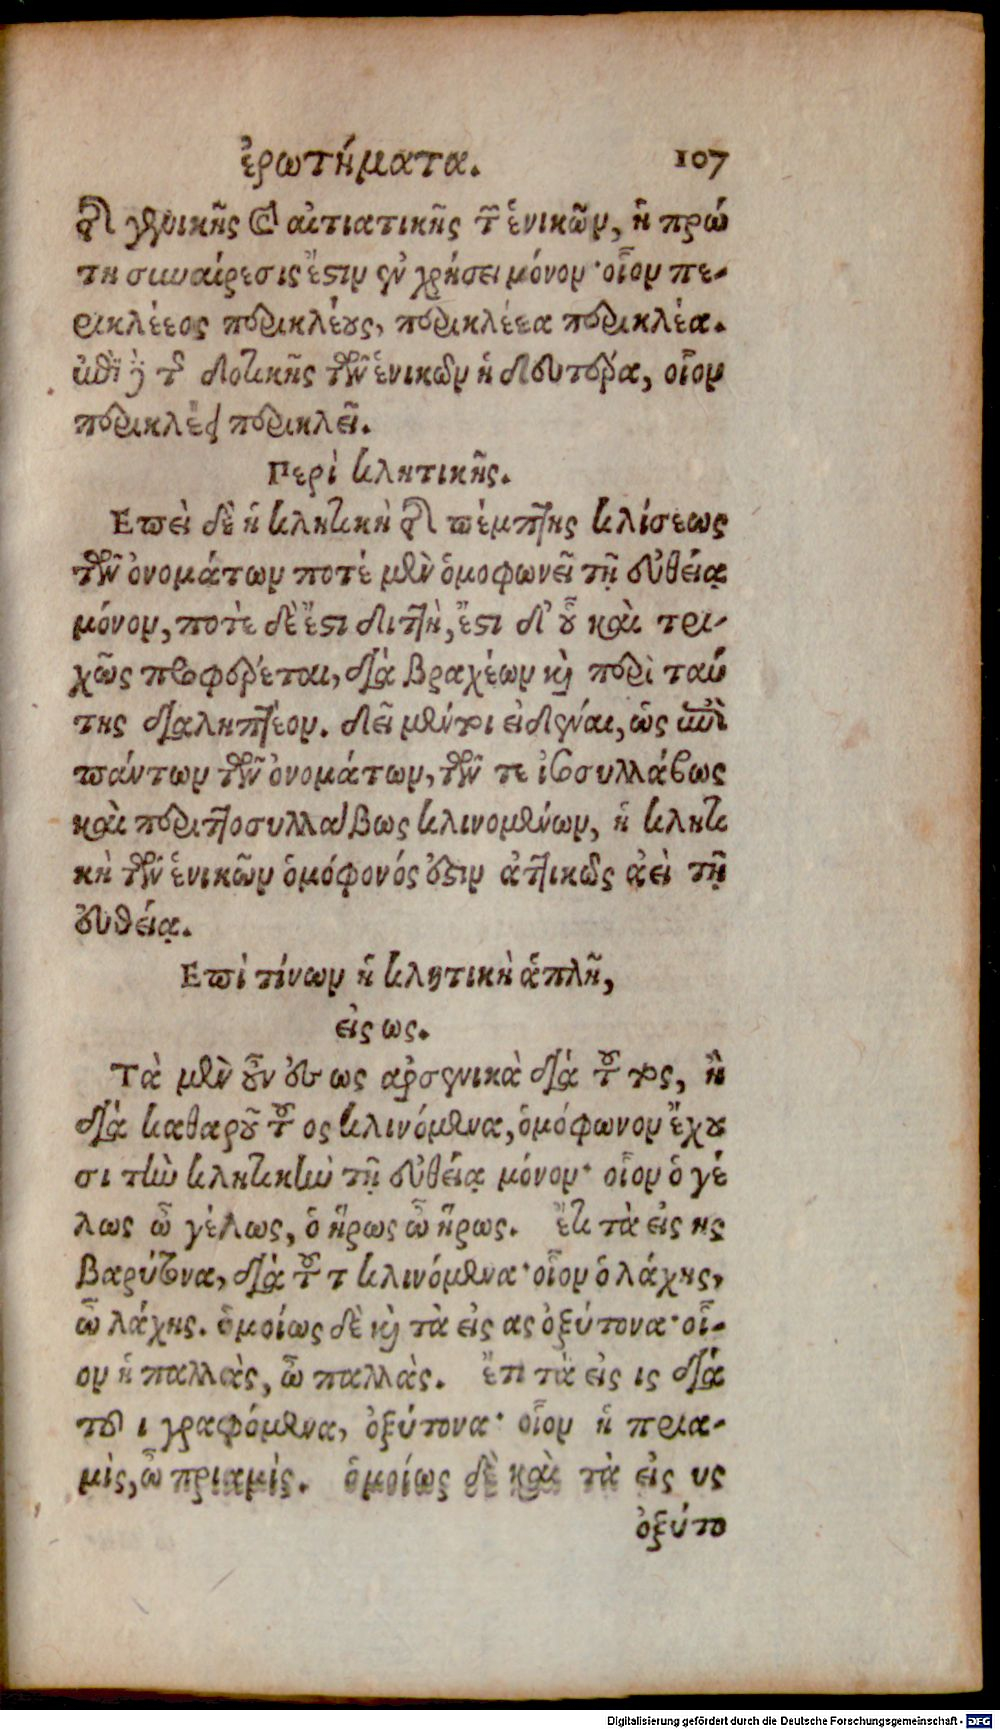 ἐρωτήματα. 107
τῆς γενικῆς καὶ αἰτιατικῆς τῶν ἑνικῶν, ἡ πρώ
τη συναίρεσις ἔστιν ἐν χρήσει μόνον· οἷον πε-
ρικλέεος περικλέους, περικλέεα περικλέα.
ἐπὶ δὲ τῆς δοτικῆς τῶν ἑνικῶν ἡ δευτέρα, οἷον
περικλέεϊ περικλεῖ.
Περὶ κλητικῆς.
Επεὶ δὲ ἡ κλητικὴ τῆς πέμπτης κλίσεως
τῶν ὀνομάτων ποτέ μὲν ὁμοφωνεῖ τῇ εὐθείᾳ
μόνον, ποτὲ δὲ ἔστι διττὴ, ἔστι δ' οὗ καὶ τρι-
χῶς προφέρεται, διὰ βραχέων καὶ περὶ ταύ
της διαληπτέον. δεῖ μέντοι εἰδέναι, ὡς ἐπὶ
πάντων τῶν ὀνομάτων, τῶν τε ἰσοσυλλάβως
καὶ περιττοσυλλάβως κλινομένων, ἡ κλητι
κὴ τῶν ἑνικῶν ὁμόφονός ἐστιν ἀττικῶς ἀεὶ τῇ
εὐθείᾳ.
Επὶ τίνων ἡ κλητικὴ ἁπλῆ,
εἰς ως.
Τὰ μὲν οὖν εἰς ως ἀρσενικὰ διὰ τοῦ τος, ἢ
διὰ καθαροῦ τοῦ ος κλινόμενα, ὁμόφωνον ἔχου
σι τὴν κλητικὴν τῇ εὐθείᾳ μόνον· οἷον ὁ γέ
λως ὦ γέλως, ὁ ἥρως ὦ ἥρως. ἔτι τὰ εἰς ης
βαρύτονα, διὰ τοῦ τ κλινόμενα· οἷον ὁ λάχης,
ὦ λάχης. ὁμοίως δὲ καὶ τὰ εἰς ας ὀξύτονα· οἷ-
ον ἡ παλλὰς, ὦ παλλὰς. ἔτι τὰ εἰς ις διὰ
τοῦ ι γραφόμενα, ὀξύτονα· οἷον ἡ πρια-
μὶς, ὦ πριαμίς. ὁμοίως δὲ καὶ τὰ εἰς υς
ὀξύτο
Digitalisierung gefördert durch die Deutsche Forschungsgemeinschaft - DFG